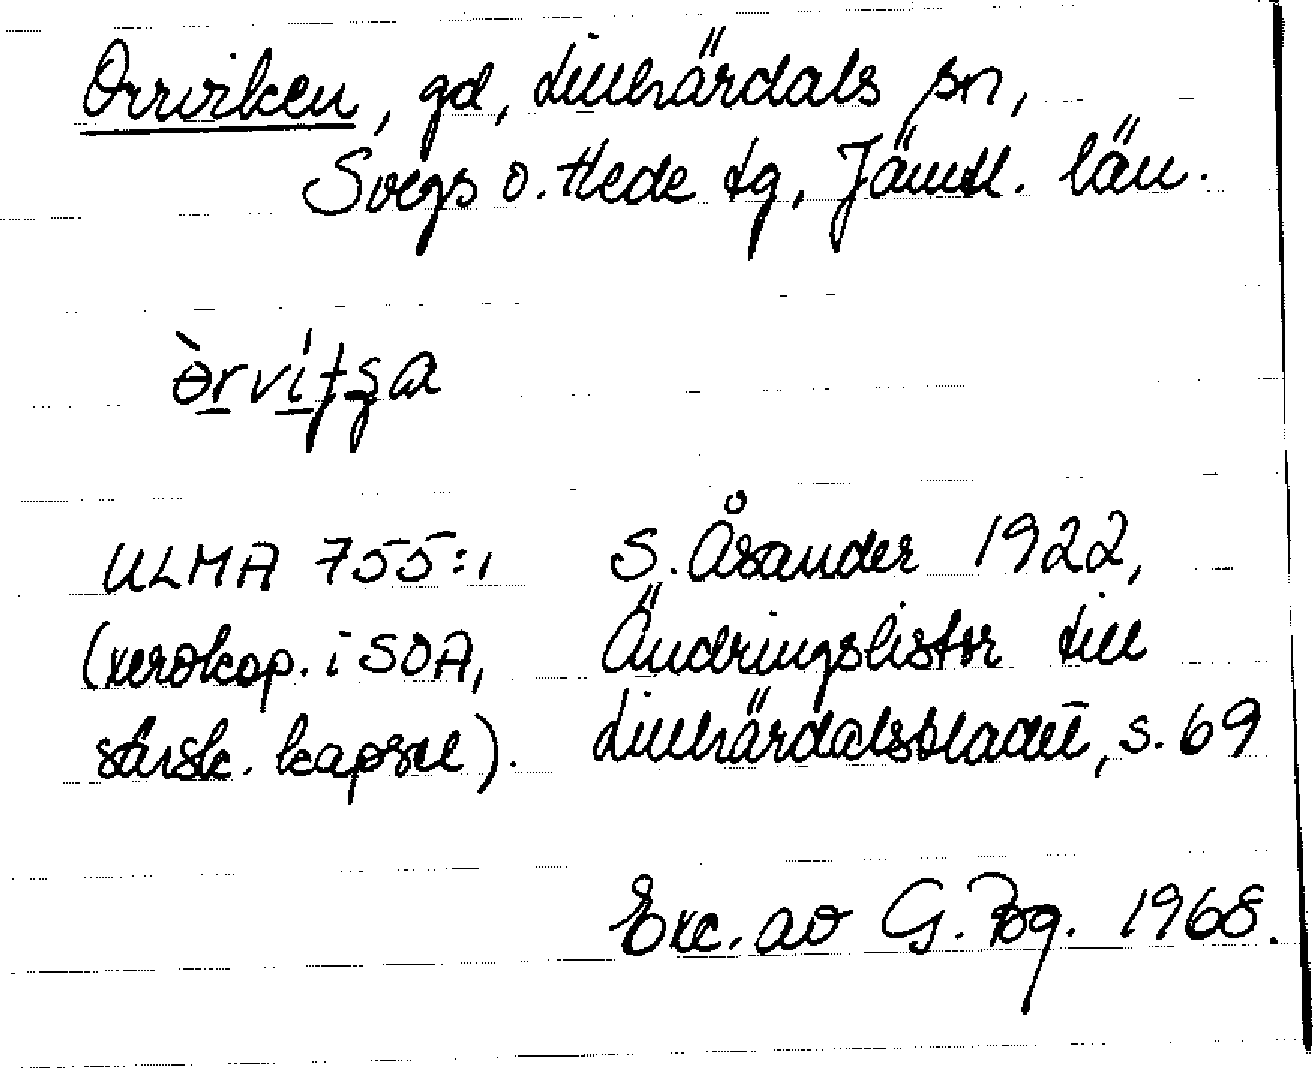 Orrviken, gd, Lillhärdals sn,
Svegs o. Hede tg, Jämtl. län.
ɵ̀rvítʂa
ULMA 755:1 S. Åsander 1922,
(xerokop. i SOA, Ändringslistor till
särsk. kapsel). Lillhärdalsbladet, s. 69
Exc. av G. Bg. 1968.